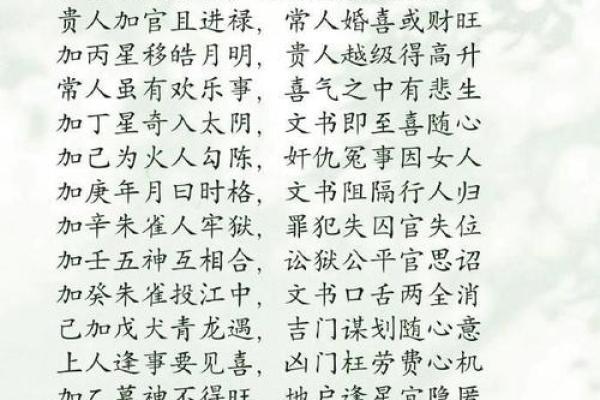 贵人加官且进禄，常人婚喜或财旺
加丙星移皓月明，贵人越级得高升
常人虽有欢乐事，喜气之中有悲生
加丁星奇入太阴，文书即至喜随心
加己为火人勾陈，奸仇冤事因女人
加庚年月日时格，文书阻隔行人归
加辛朱雀人牢狱，罪犯失囚官失位
加壬五神互相合，讼狱公平官思诏
加癸朱雀投江中，文书口舌两全消
己加戊犬青龙遇，吉门谋划随心意
上人逢事要见喜，凶门枉劳费心机
加乙墓神不得旺，地户逢星宜隐匿